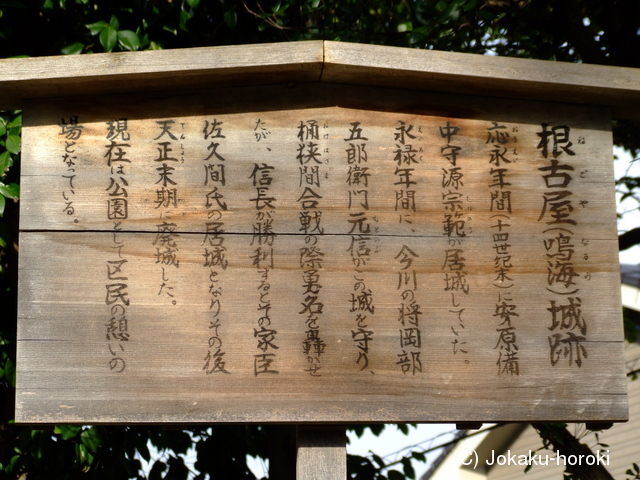 根古屋(鳴海)城跡
応永年間(十四世紀末)に安原備
中守源宗範が居城していた。
永禄年間に、今川の将岡部
五郎衛門元信がこの城を守り、
桶狭間合戦の際勇名を轟かせ
たが、信長が勝利するとその家臣
佐久間氏の居城となりその後
天正末期に廃城した。
現在は公園として区民の憩いの
場となっている。
(C) Jokaku-horoki